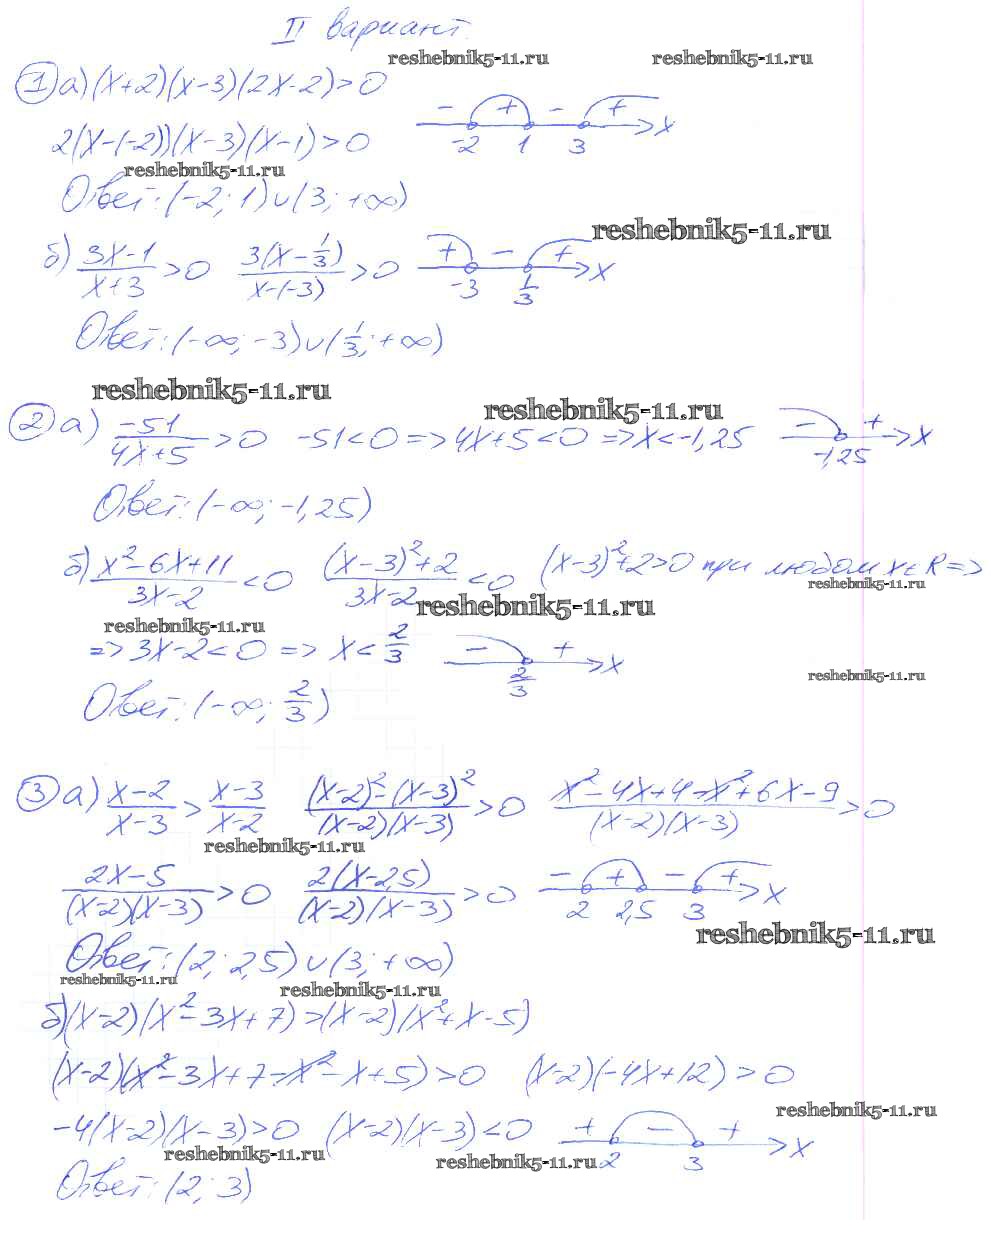 II вариант.
reshebnik5-11.ru reshebnik5-11.ru
1) а) (x+2)(x-3)(2x-2)>0
- + - + x
-2 1 3
2(x-(-2))(x-3)(x-1)>0
reshebnik5-11.ru
Ответ: (-2; 1)∪(3; +∞)
reshebnik5-11.ru
б) (3x-1)/(x+3)>0 3(x-1/3)/(x-(-3))>0 + - + x
-3 1/3
Ответ: (-∞; -3)∪(1/3; +∞)
reshebnik5-11.ru
reshebnik5-11.ru
2) а) -51/(4x+5)>0 -51<0 => 4x+5<0 => x<-1,25 - + x
-1,25
Ответ: (-∞; -1,25)
б) (x²-6x+11)/(3x-2)<0 ((x-3)²+2)/(3x-2)<0 (x-3)²+2>0 при любом x∈R =>
reshebnik5-11.ru
reshebnik5-11.ru
reshebnik5-11.ru
=> 3x-2<0 => x<2/3 - + x
2/3
reshebnik5-11.ru
Ответ: (-∞; 2/3)
3) а) (x-2)/(x-3)>(x-3)/(x-2) ((x-2)²-(x-3)²)/((x-2)(x-3))>0 (x²-4x+4-x²+6x-9)/((x-2)(x-3))>0
reshebnik5-11.ru
(2x-5)/((x-2)(x-3))>0 2(x-2,5)/((x-2)(x-3))>0 - + - + x
2 2,5 3
reshebnik5-11.ru
Ответ: (2; 2,5)∪(3; +∞)
reshebnik5-11.ru
reshebnik5-11.ru
б) (x-2)(x²-3x+7)>(x-2)(x²+x-5)
(x-2)(x²-3x+7-x²-x+5)>0 (x-2)(-4x+12)>0
reshebnik5-11.ru
-4(x-2)(x-3)>0 (x-2)(x-3)<0 + - + x
2 3
reshebnik5-11.ru reshebnik5-11.ru
Ответ: (2; 3)